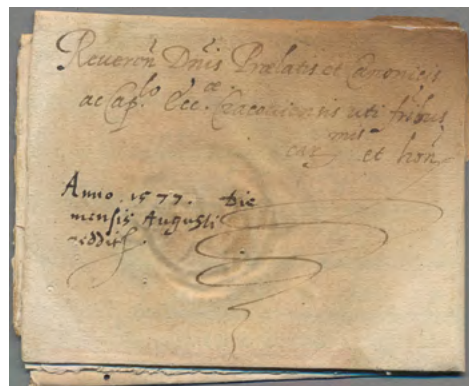 Reueren̄ Dn̄is Prælatis et Canonicis
ac Cap.lo Ecc.æ Cracouiensis uti fr̄ibus
car.mis et hon.
Anno . 1577. Die
mensis Augusti
reddit